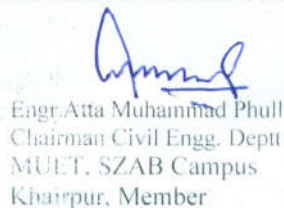 Engr.Atta Muhammad Phull
Chairman Civil Engg. Deptt
MUET, SZAB Campus
Khairpur, Member